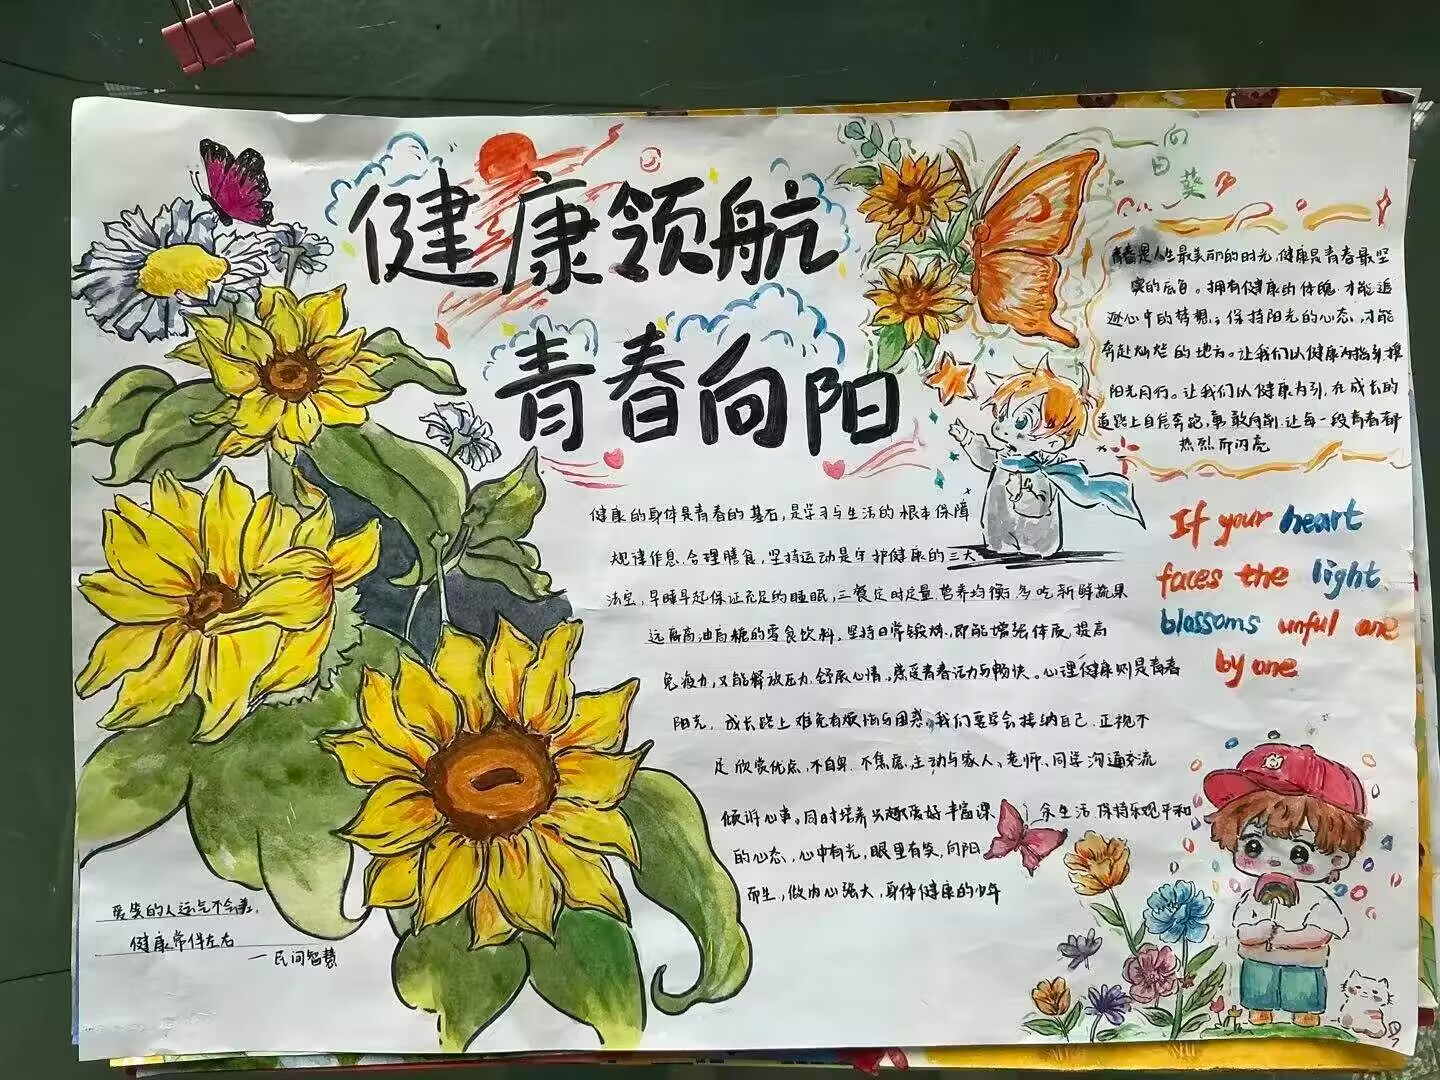 健康领航
青春向阳
小
向
日
葵
青春是人生最美丽的时光,健康是青春最坚
实的底色。拥有健康的体魄,才能追
逐心中的梦想,保持阳光的心态,才能
奔赴灿烂的地方。让我们以健康为指引,携
阳光同行。让我们以健康为引,在成长的
道路上自信奔跑,勇敢向前.让每一段青春都
热烈而闪亮
健康的身体是青春的基石,是学习与生活的根本保障
规律作息.合理膳食,坚持运动是守护健康的三大
法宝,早睡早起保证充足的睡眠,三餐定时定量,营养均衡,多吃新鲜蔬果
远离高油高糖的零食饮料,坚持日常锻炼,即能增强体质,提高
免疫力,又能释放压力.舒展心情,感受青春活力与畅快。心理健康则是青春
阳光,成长路上难免有烦恼与困惑,我们要学会接纳自己.正视不
足欣赏优点,不自卑.不焦虑,主动与家人、老师、同学沟通交流
倾诉心事。同时培养兴趣爱好丰富课余生活,保持乐观平和
的心态,心中有光,眼里有笑,向阳
而生,做内心强大,身体健康的少年
If your heart
faces the light
blossoms unful one
by one
爱笑的人运气不会差,
健康常伴左右
—民间智慧